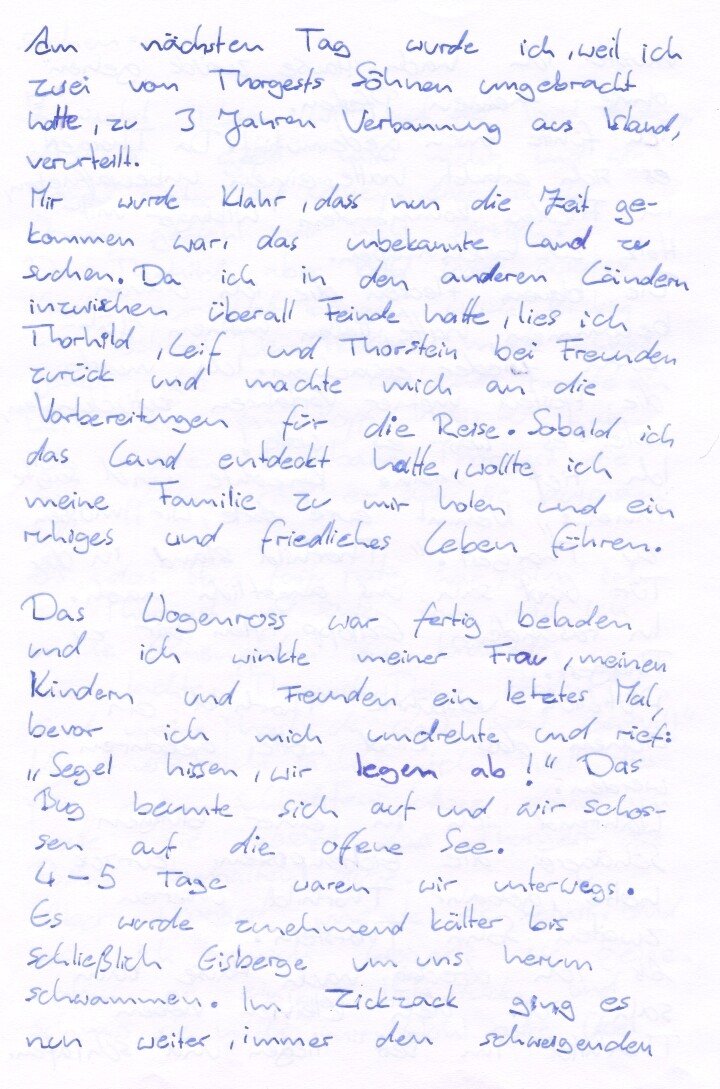 Am nächsten Tag wurde ich, weil ich
zwei von Thorgests Söhnen umgebracht
hatte, zu 3 Jahren Verbannung aus Island,
verurteilt.
Mir wurde klahr, dass nun die Zeit ge-
kommen war, das unbekannte Land zu
suchen. Da ich in den anderen Ländern
inzwischen überall Feinde hatte, lies ich
Thorhild, Leif und Thorstein bei Freunden
zurück und machte mich an die
Vorbereitungen für die Reise. Sobald ich
das Land entdeckt hatte, wollte ich
meine Familie zu mir holen und ein
ruhiges und friedliches Leben führen.

Das Wogenross war fertig beladen
und ich winkte meiner Frau, meinen
Kindern und Freunden ein letztes Mal,
bevor ich mich umdrehte und rief:
„Segel hissen, wir legen ab!“ Das
Bug beumte sich auf und wir schos-
sen auf die offene See.
4-5 Tage waren wir unterwegs.
Es wurde zunehmend kälter bis
schließlich Eisberge um uns herum
schwammen. Im Zickzack ging es
nun weiter, immer den schweigenden